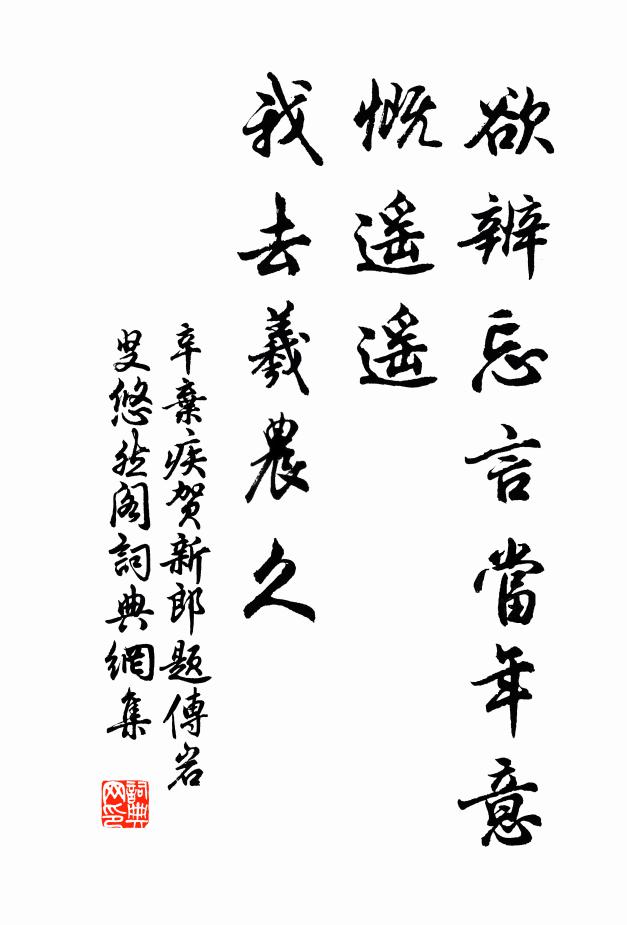 欲辨忘言當年意
慨遥遥
我去羲農久
辛棄疾贺新郎题傅岩
叟悠然阁詞典網集
詞典网印